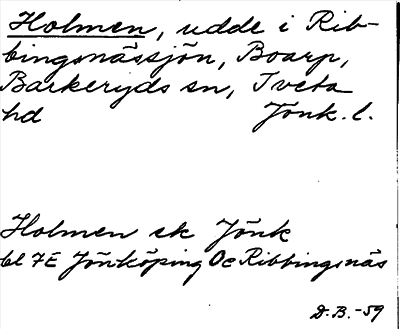 Holmen, udde i Rib-
bingsnässjön, Boarp,
Barkeryds sn, Tveta
hd Jönk. l.
Holmen ek Jönk
bl 7E Jönköping Öc Ribbingsnäs
D.B. -59